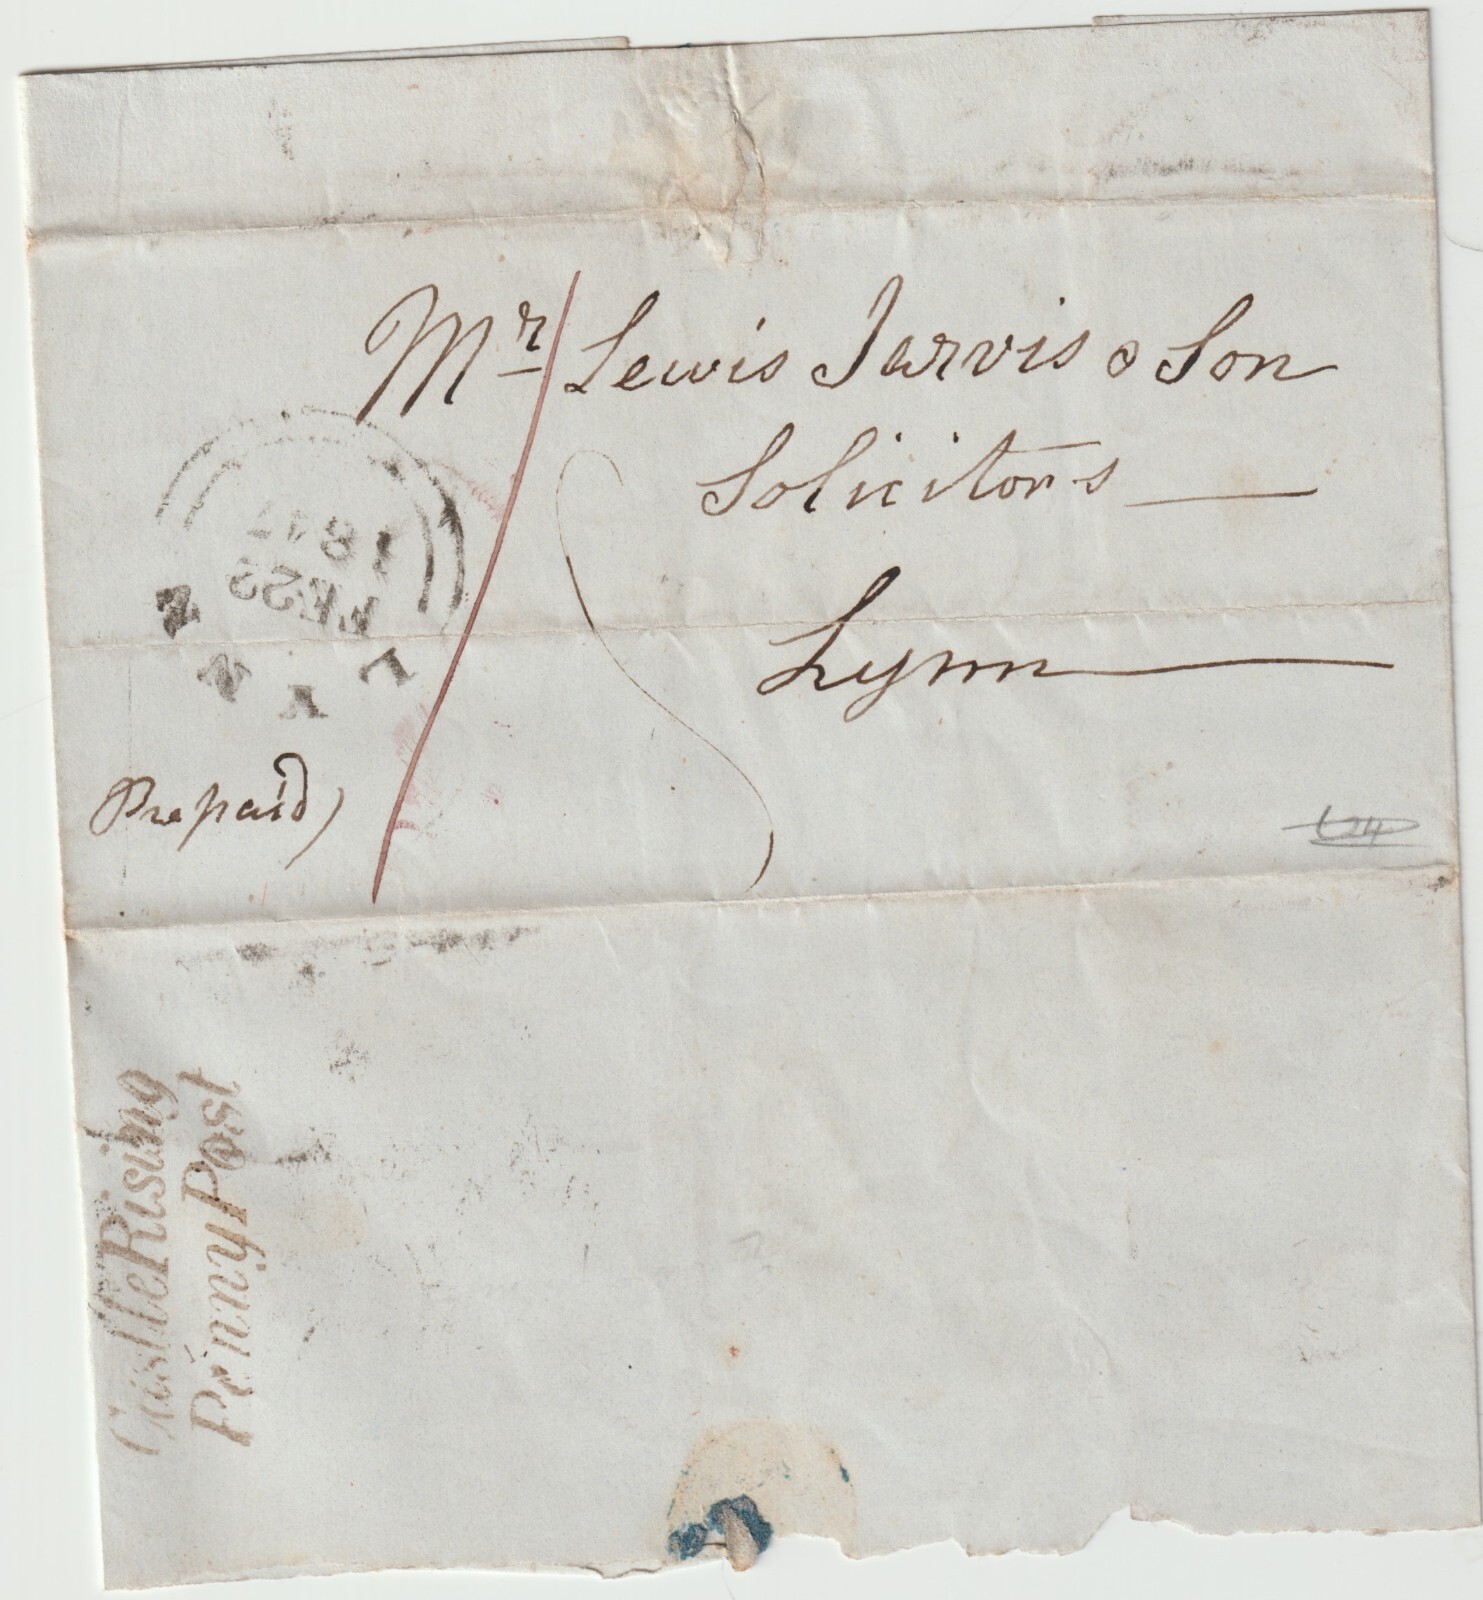 Mr Lewis Jarvis & Son
Solicitors
Lynn
LYNN
FE 23
1847
Prepaid
Castle Rising
Penny Post